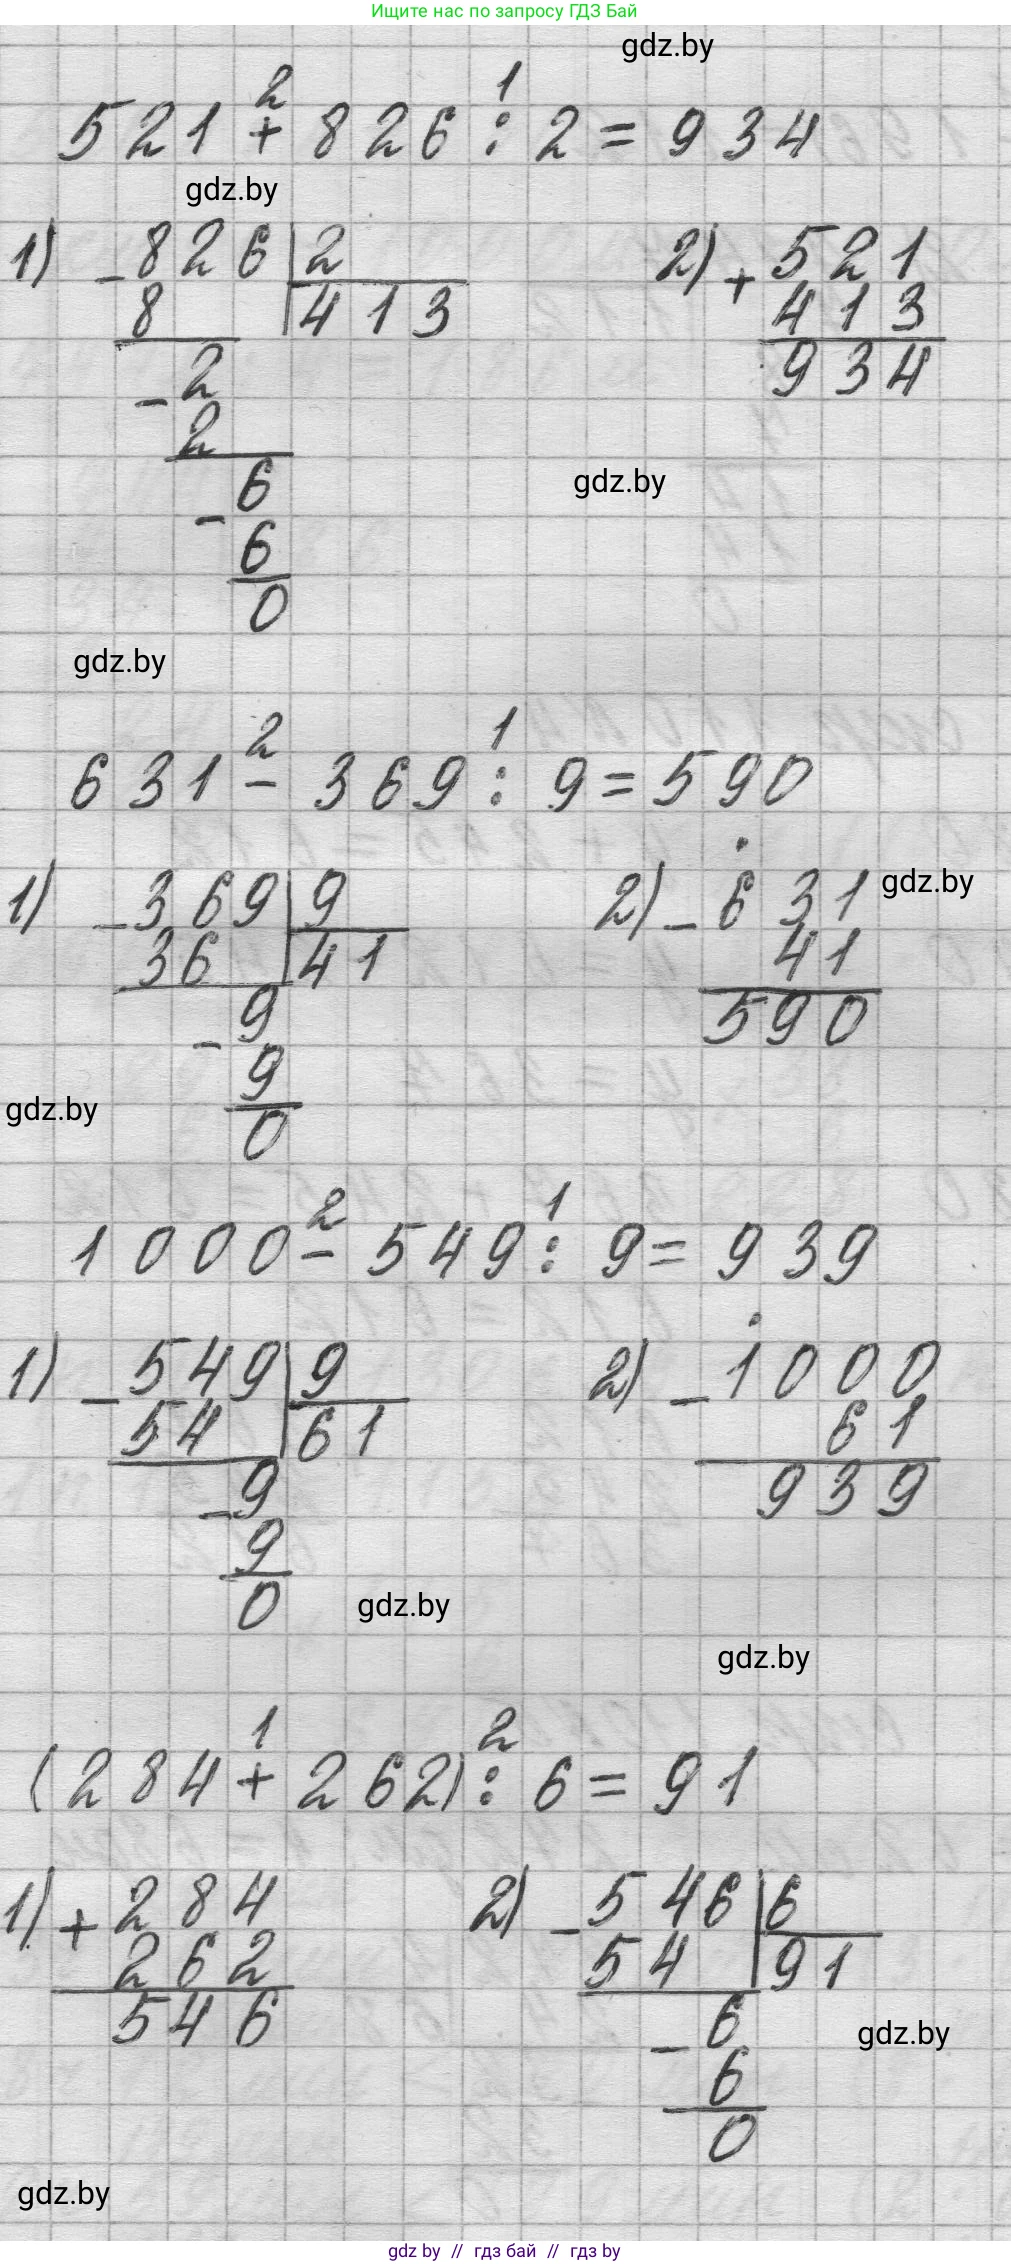 Ищите нас по запросу ГДЗ Бай
gdz.by
2 1
521 + 826 : 2 = 934
gdz.by
1) - 826 | 2
8 | 413
- 2
2
- 6
6
0
2) + 521
413
934
gdz.by
gdz.by
2 1
631 - 369 : 9 = 590
1) - 369 | 9
36 | 41
- 9
9
0
2) - 631
41
590
gdz.by
gdz.by
2 1
1000 - 549 : 9 = 939
1) - 549 | 9
54 | 61
- 9
9
0
2) - 1000
61
939
gdz.by
gdz.by
1 2
(284 + 262) : 6 = 91
1) + 284
262
546
2) - 546 | 6
54 | 91
- 6
6
0
gdz.by
gdz.by
gdz by // гдз бай // гдз by